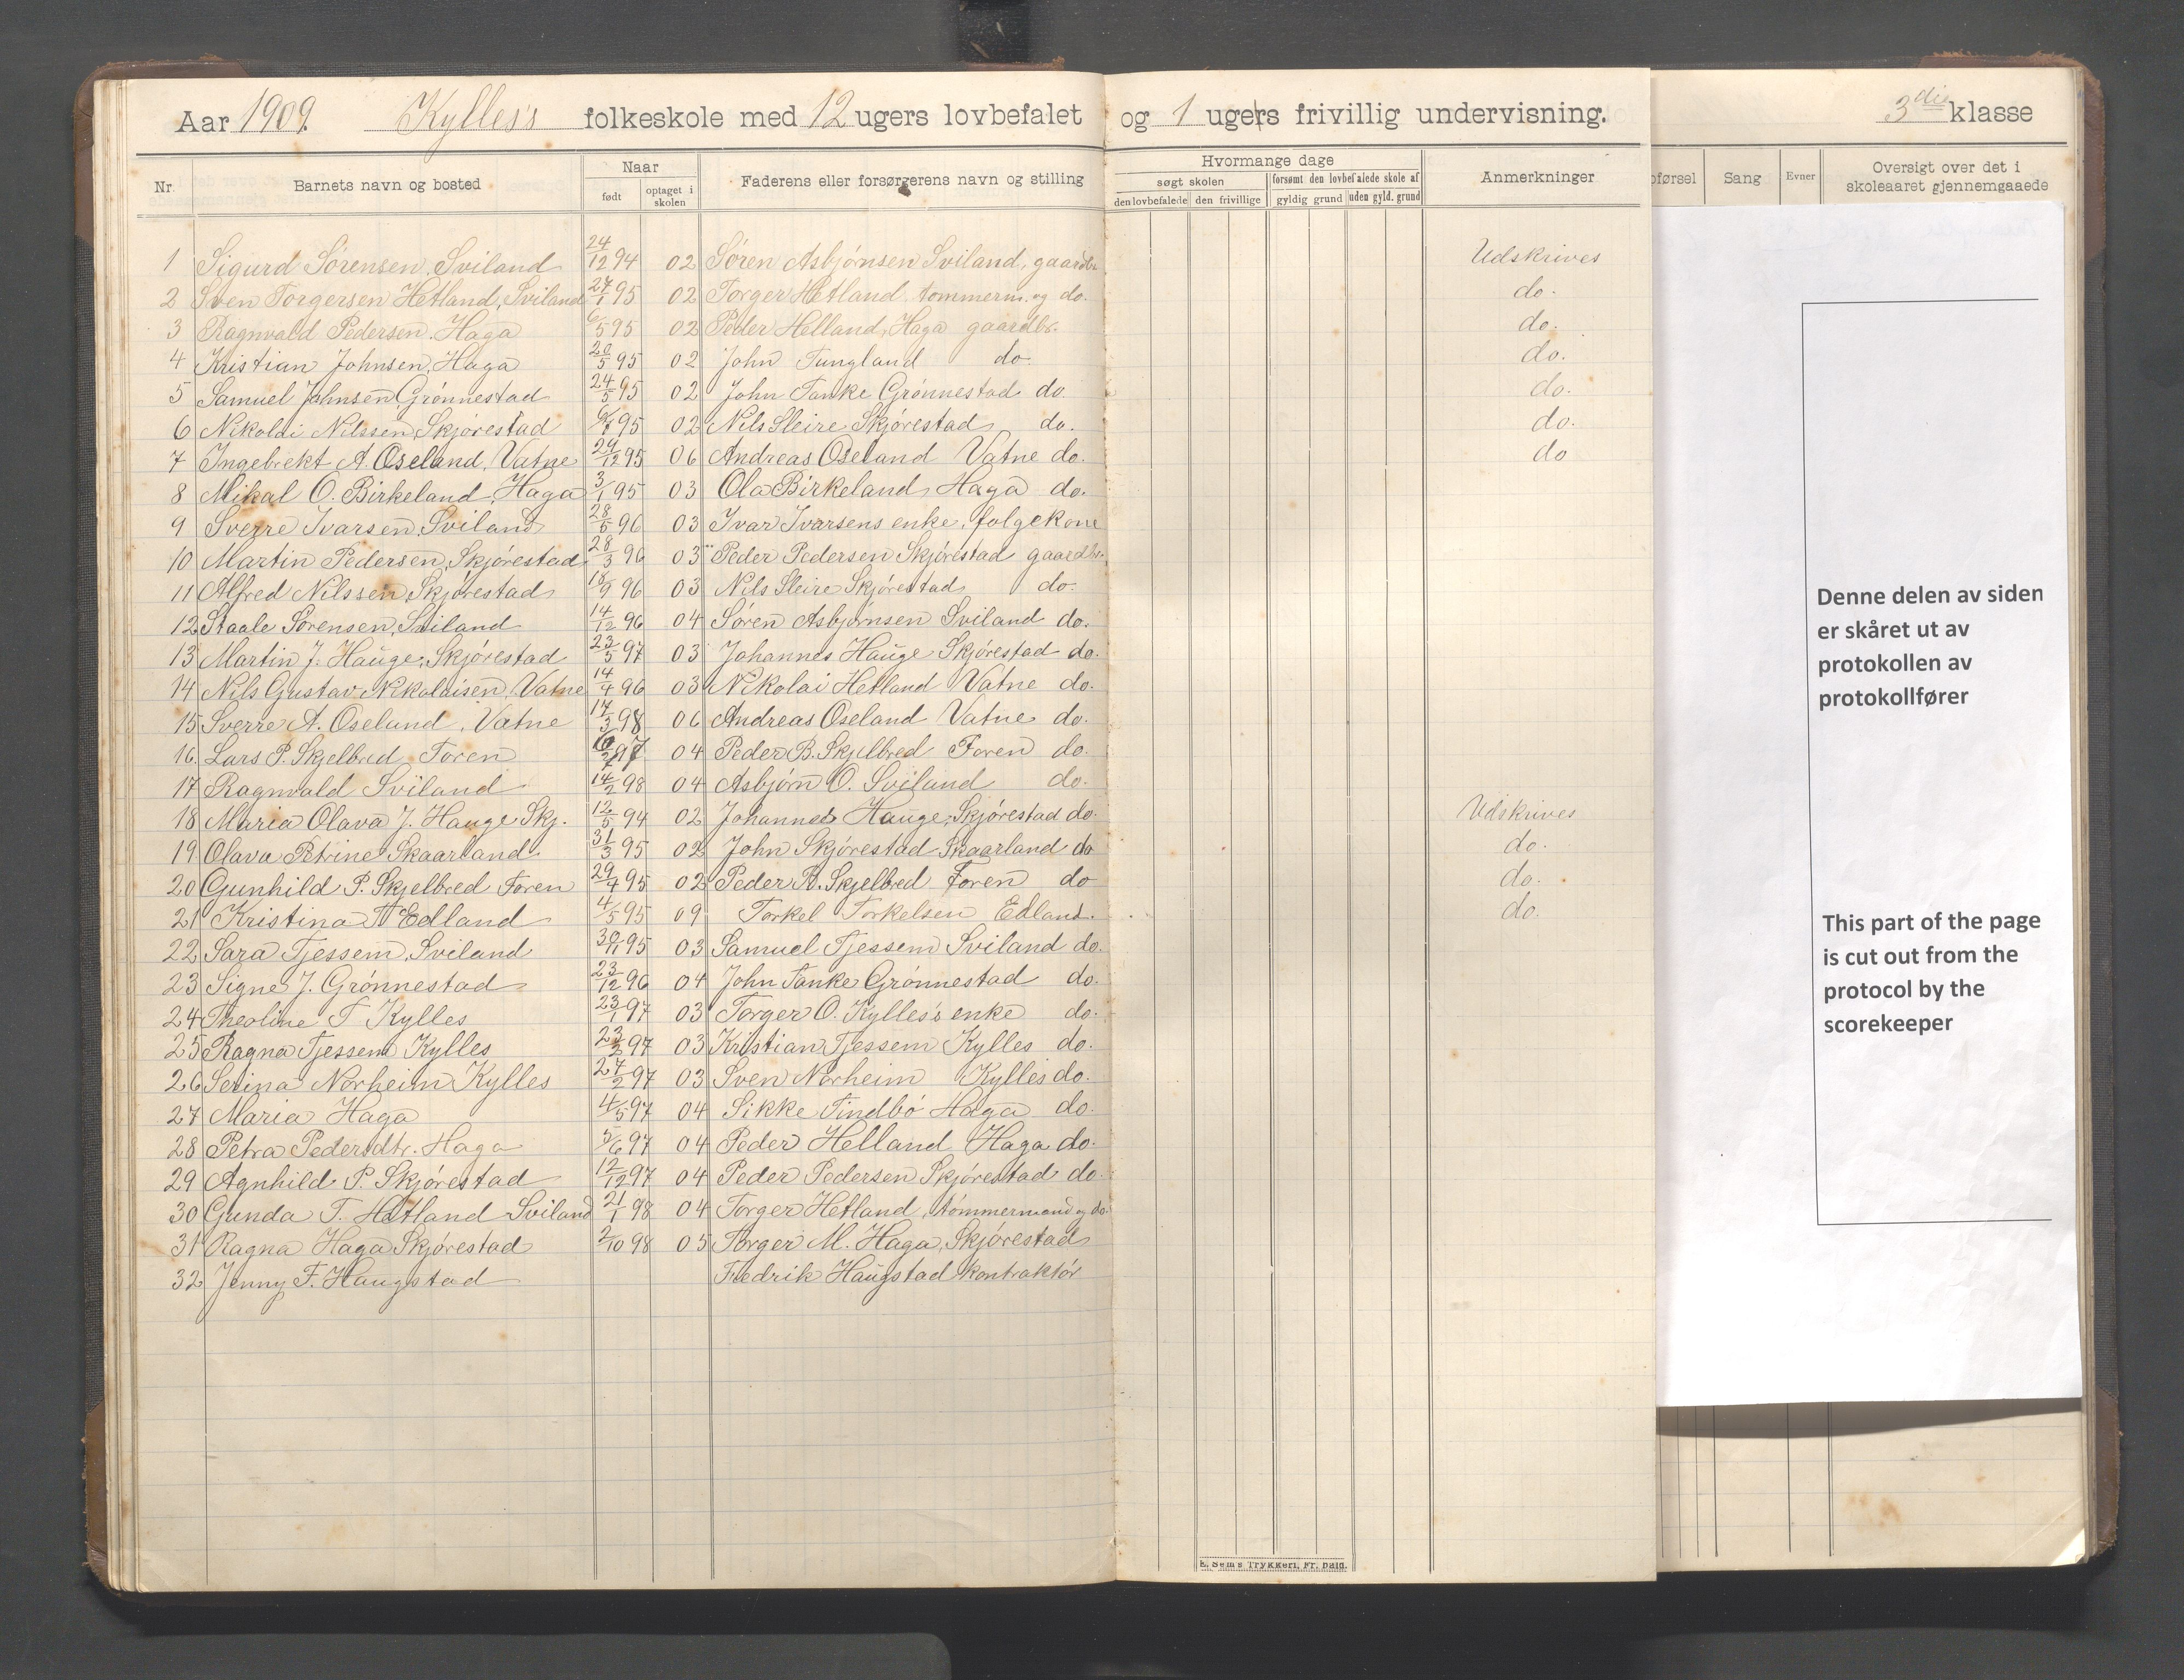 Aar 1909. Kylles's folkeskole med 12 ugers lovbefalet og 1 ugers frivillig undervisning. 3die klasse
Nr. Barnets navn og bosted Naar født optaget i skolen Faderens eller forsørgerens navn og stilling Hvormange dage søgt skolen den lovbefalede den frivillige forsømt den lovbefalede skole af gyldig grund uden gyld. grund Anmerkninger pførsel Sang Evner Oversigt over det i skoleaaret gjennemgaaede
1 Sigurd Sørensen, Sviland 24/12 94 02 Søren Asbjørnsen Sviland, gaardbr. Udskrives
2 Sven Torgersen Hetland, Sviland 27/1 95 02 Torger Hetland tømmerm. og do. do.
3 Ragnvald Pedersen, Haga 6/5 95 02 Peder Helland, Haga gaardbr. do.
4 Kristian Johnsen, Haga 20/5 95 02 John Tungland do. do.
5 Samuel Johnsen Grønnestad 24/5 95 02 John Tanke Grønnestad do. do.
6 Nikolai Nilssen, Skjørestad 95 02 Nils Sleire Skjørestad do. do.
7 Ingebrekt A. Oseland, Vatne 29/12 95 06 Andreas Oseland Vatne do. do
8 Mikal O. Birkeland, Haga 3/1 95 03 Ola Birkeland, Haga do.
9 Sverre Ivarsen, Sviland 28/5 96 03 Ivar Ivarsens enke, følgekone
10 Martin Pedersen, Skjørestad 28/3 96 03 Peder Pedersen Skjørestad gaardbr.
11 Alfred Nilssen, Skjørestad 18/9 96 03 Nils Sleire Skjørestad do.
12 Staale Sørensen, Sviland 14/12 96 04 Søren Asbjørnsen Sviland do.
13 Martin J. Hauge, Skjørestad 23/5 97 03 Johannes Hauge Skjørestad do.
14 Nils Gustav Nikolaisen, Vatne 14/4 96 03 Nikolai Hetland Vatne do.
15 Sverre A. Oseland, Vatne 17/3 98 06 Andreas Oseland Vatne do.
16. Lars P. Skjelbred Foren 97 04 Peder B. Skjelbred Foren do.
17 Ragnvald Sviland 14/2 98 04 Asbjørn O. Sviland do.
18 Maria Olava J. Hauge Skj. 12/5 94 02 Johannes Hauge, Skjørestad do. Udskrives
19 Olava Petrine Skaarland 31/3 95 02 John Skjørestad Skaarland do do.
20 Gunhild P. Skjelbred Foren 29/4 95 02 Peder B. Skjelbred Foren do do.
21 Kristina T Edland 4/5 95 09 Torkel Torkelsen Edland. do.
22 Sara Tjessem, Sviland 30/11 95 03 Samuel Tjessem Sviland do.
23 Signe J. Grønnestad 23/12 96 04 John Tanke Grønnestad do.
24 Theoline T Kylles 23/1 97 03 Torger O. Kylles's enke do.
25 Ragna Tjessem Kylles 23/2 97 03 Kristian Tjessem Kylles do.
26 Serina Norheim Kylles 27/2 97 03 Sven Norheim Kylles do.
27 Maria Haga 4/5 97 04 Sikke Tindbø Haga do.
28 Petra Pedersdtr. Haga 5/6 97 04 Peder Helland Haga do.
29 Agnhild P. Skjørestad 12/12 97 04 Peder Pedersen Skjørestad do
30 Gunda T. Hetland Sviland 21/1 98 04 Torger Hetland, tømmermand og do.
31 Ragna Haga Skjørestad 2/10 98 05 Torger M. Haga, Skjørestad
32 Jenny F. Haugstad Fredrik Haugstad kontraktør
E. Sem's Trykkeri, Fr. hald.
Denne delen av siden
er skåret ut av
protokollen av
protokollfører
This part of the page
is cut out from the
protocol by the
scorekeeper